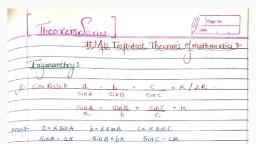 [ Theorem Series ]
Page No.
Date
# All Important Theorems of mathematics :-
Trigonometry :-
Sine Rule :- a/SinA = b/SinB = c/SinC = K / 2R
SinA/a = SinB/b = SinC/c = K
a = K SinA b = K SinB c = K SinC
SinA = aK SinB = bK SinC = cK